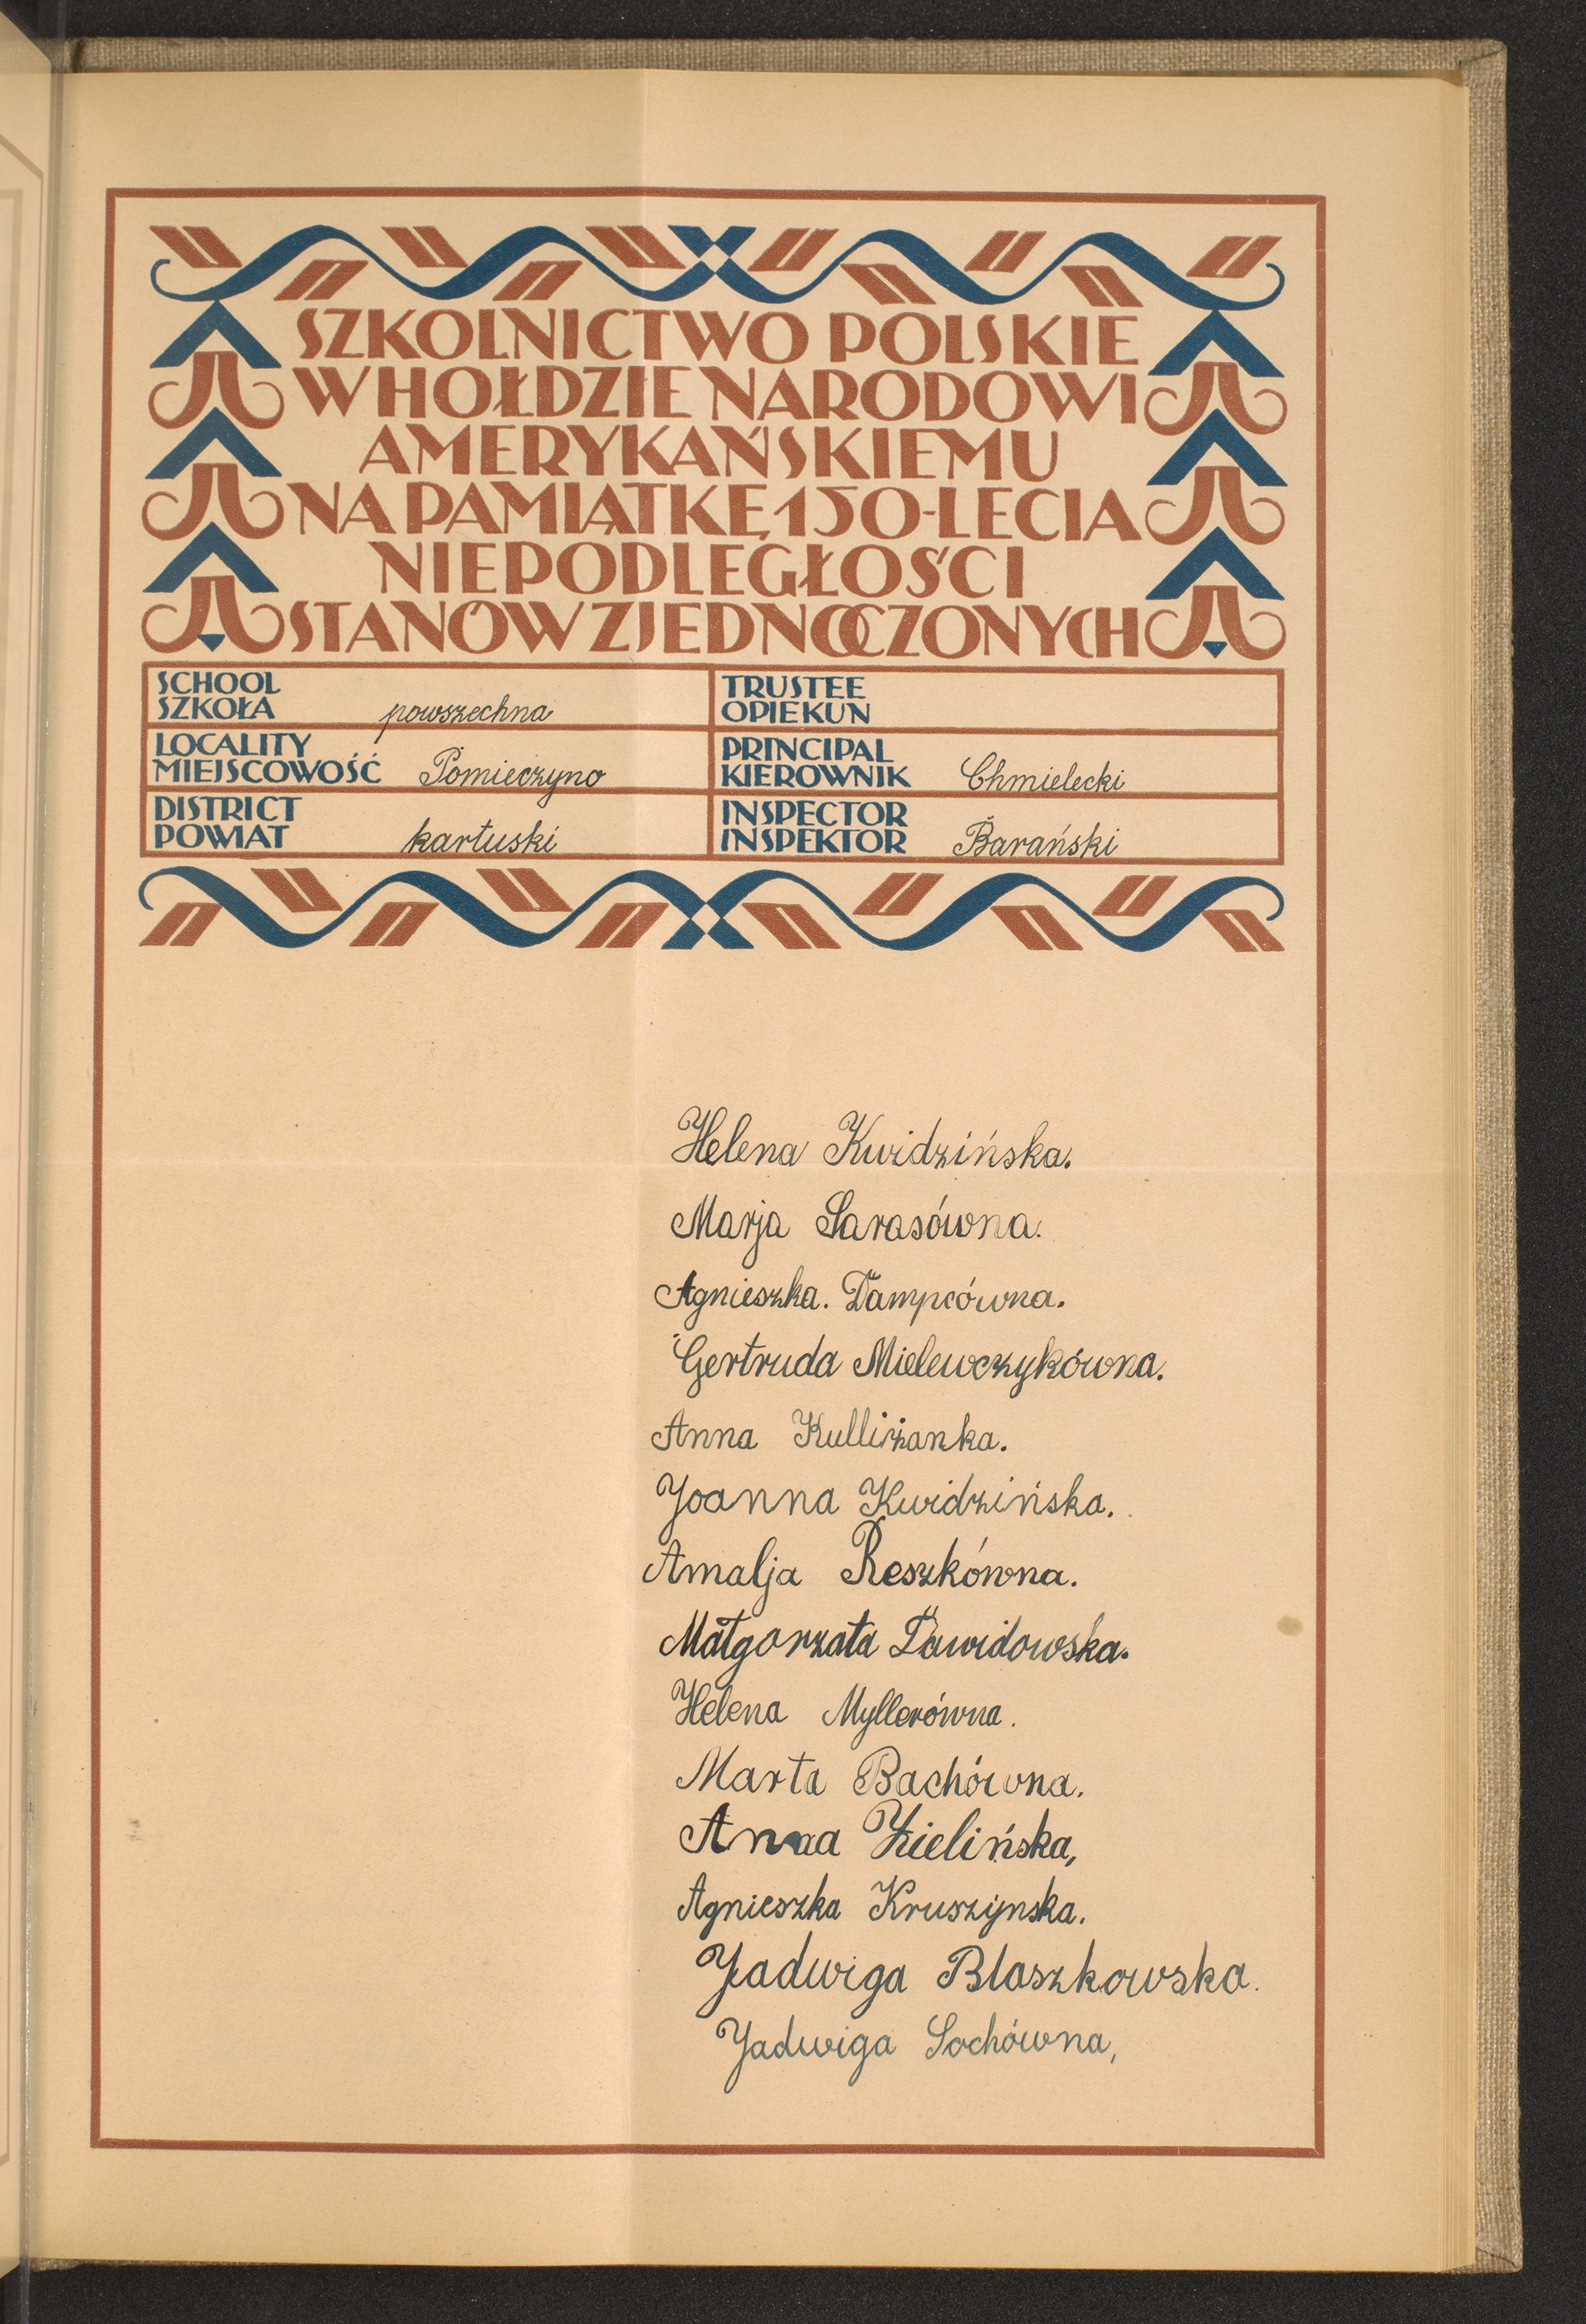 SZKOLNICTWO POLSKIE
W HOŁDZIE NARODOWI
AMERYKAŃSKIEMU
NA PAMIĄTKĘ 150-LECIA
NIEPODLEGŁOŚCI
STANÓW ZJEDNOCZONYCH
SCHOOL
SZKOŁA powszechna
TRUSTEE
OPIEKUN
LOCALITY
MIEJSCOWOŚĆ Pomieczyno
PRINCIPAL
KIEROWNIK Chmielecki
DISTRICT
POWIAT kartuski
INSPECTOR
INSPEKTOR Barański
Helena Kwidzińska.
Marja Sarasówna.
Agnieszka. Dampcówna.
Gertruda Mielewczykówna.
Anna Kulliżanka.
Joanna Kwidzińska.
Amalja Reszkówna.
Małgorzata Dawidowska.
Helena Myllerówna.
Marta Bachówna.
Anna Zielińska,
Agnieszka Kruszynska.
Jadwiga Blaszkowska.
Jadwiga Sochówna,